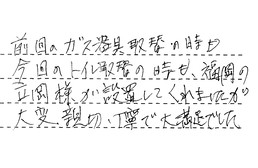 前回のガス器具取替の時も
今回のトイレ取替の時も、福岡の
立岡様が設置してくれましたが
大変親切、丁寧で大満足でした